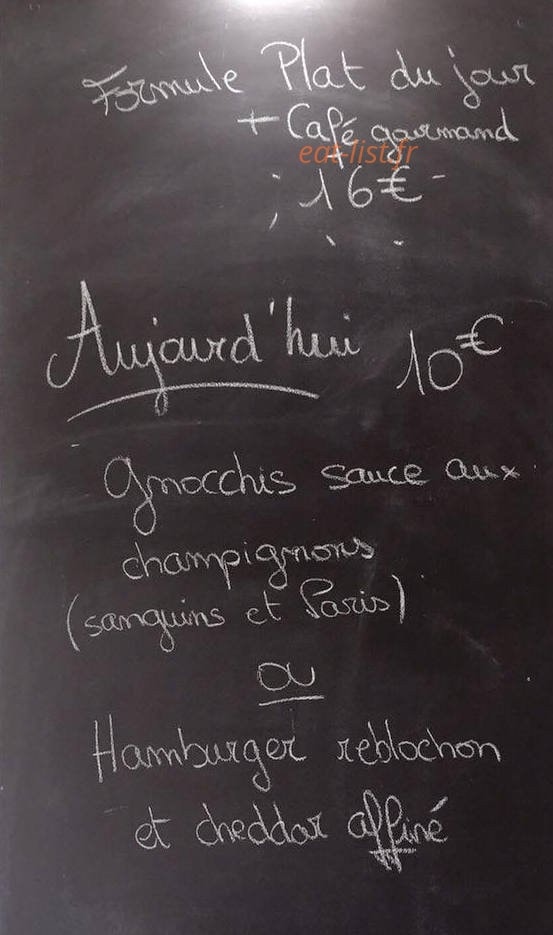 Formule Plat du jour
+ Café gourmand
eat-list.fr
16€
Aujourd'hui 10€
Gnocchis sauce aux
champignons
(sanguins et Paris)
ou
Hamburger reblochon
et cheddar affiné